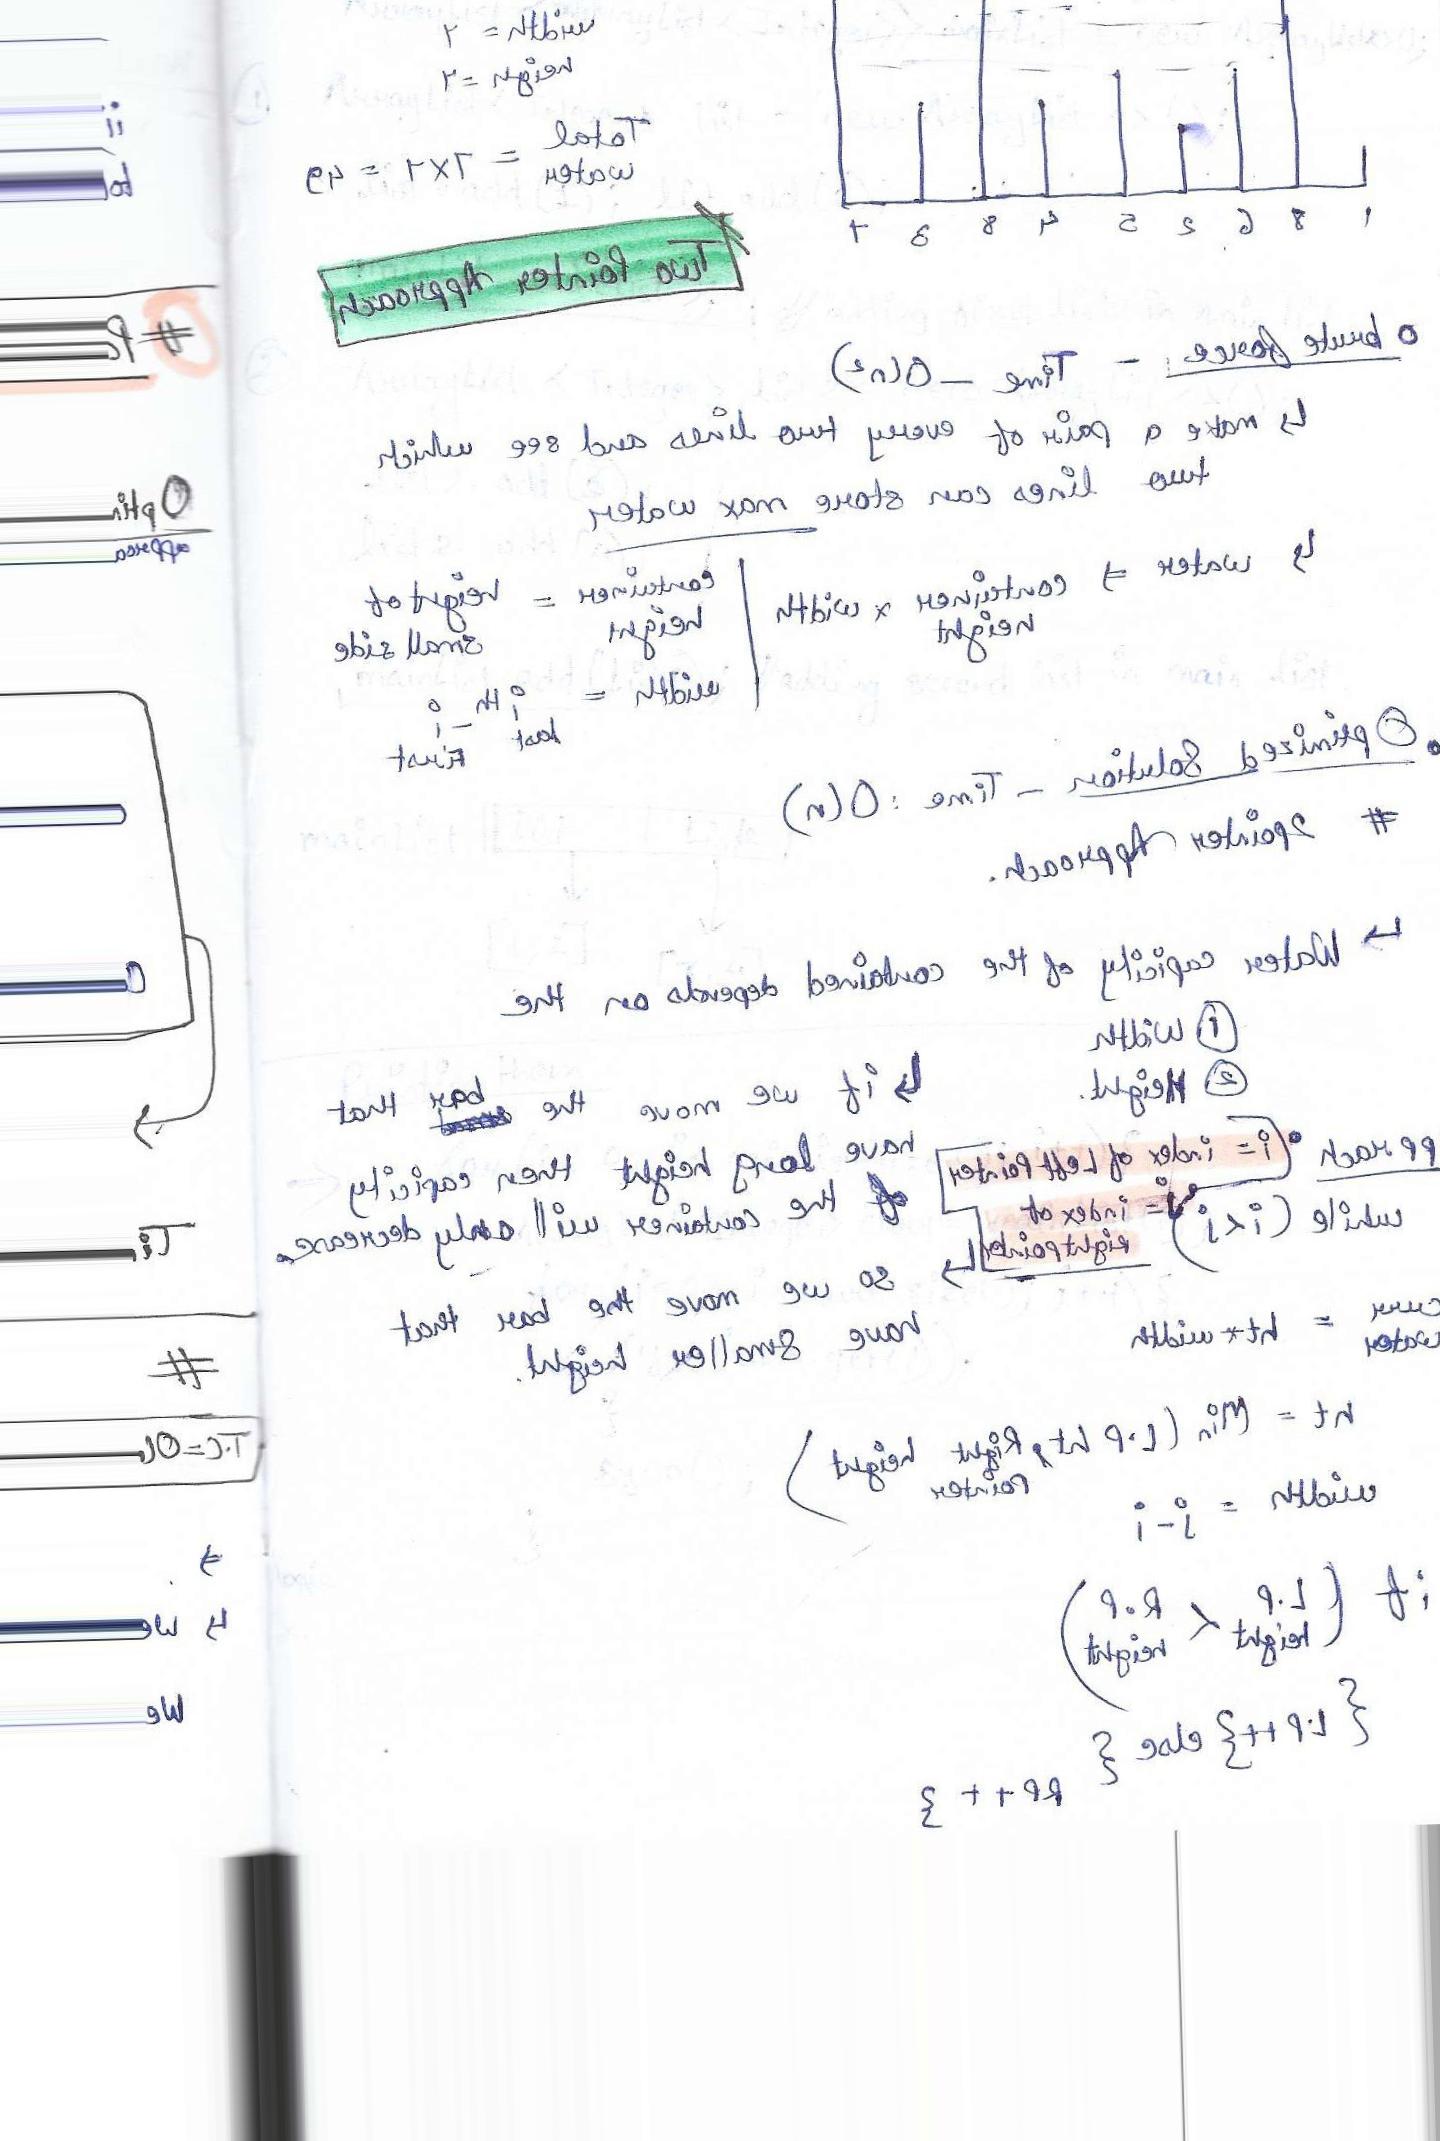 width = 7
heigh = 7
Total water = 7x7 = 49
1 8 6 2 5 4 8 3 7
Two Pointer Approach
brute force - Time - O(n²)
↳ make a pair of every two lines and see which
two lines can store max water
↳ water ⇒ container height x width
container height = height of small side
width = jth - i
last First
Optimized Solution - Time : O(n)
# 2 pointer Approach.
↳ Water capicity of the contained depends on the
① Width
② Height.
↳ if we move the bar that
have long height then capicity
of the container will only decrease.
↳ so we move the bar that
have smaller height.
pproach
i = index of Left Pointer
j = index of right pointer
while (i < j)
curr water = ht * width
ht = Min (L.P ht, Right Pointer height)
width = j - i
if (L.P height < R.P height)
{ L.P++ } else {
RP++ }
# P
Optim
approa
Ti
#
T.C = O(
⇒
↳ we
We